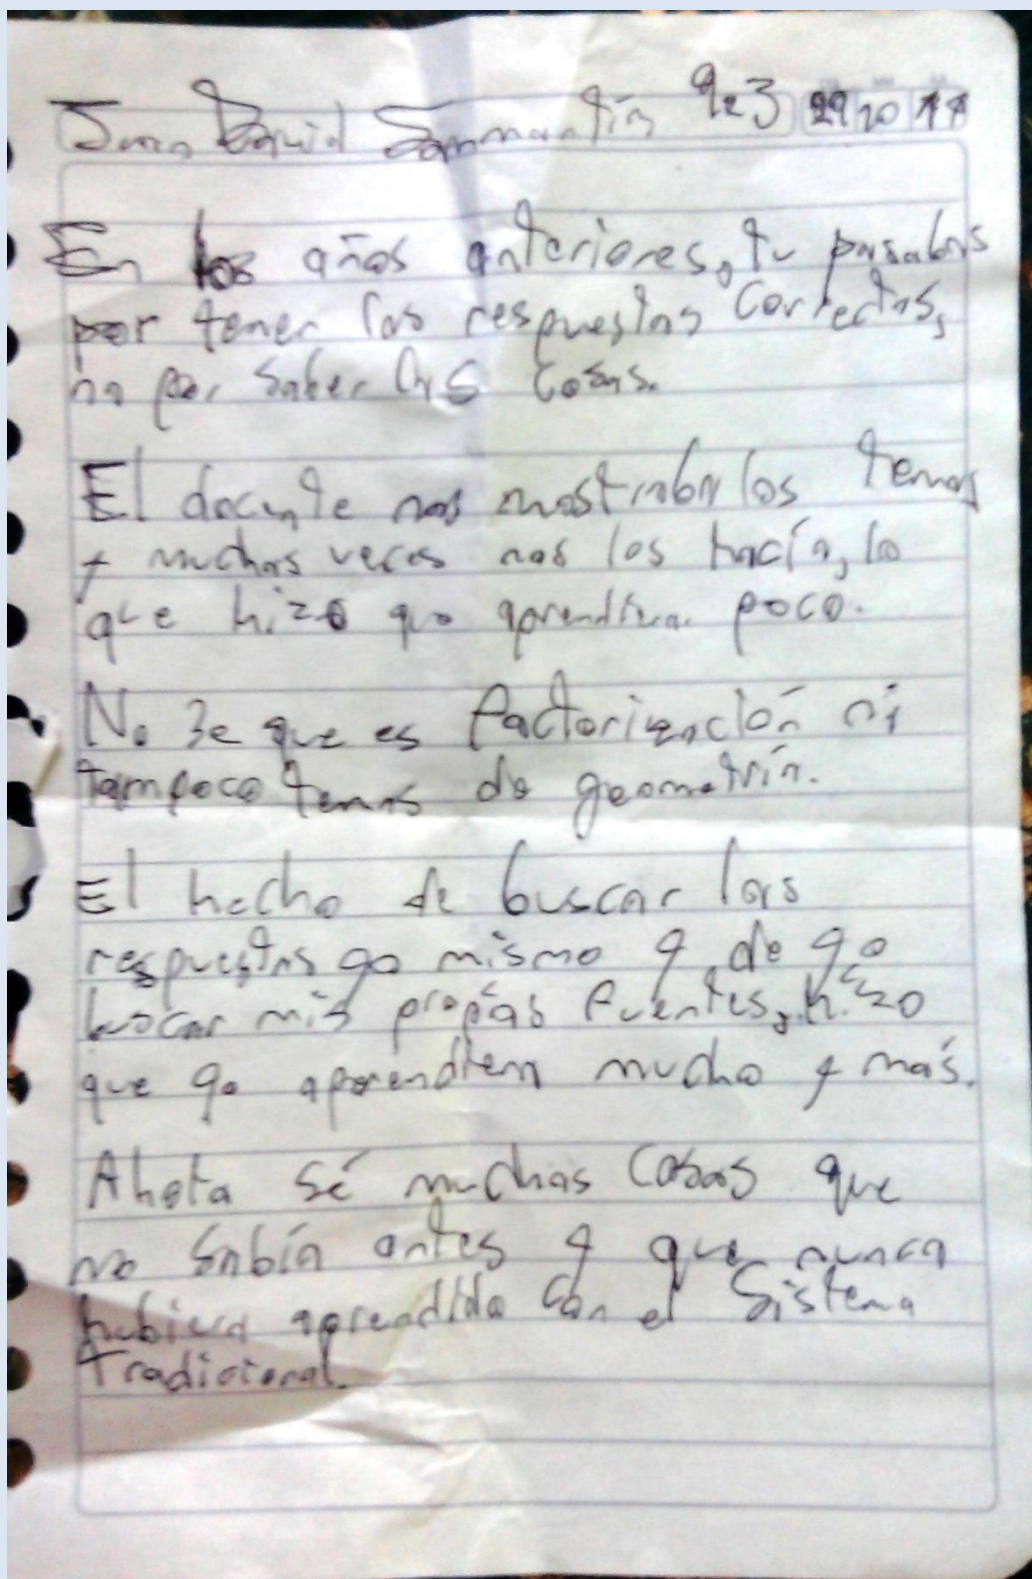 Juan David Sanmartín 9°3 29 10 11
En los años anteriores, tu pasabas
por tener las respuestas correctas,
no por saber las cosas.
El docente nos mostraba los temas
y muchas veces nos los hacía, lo
que hizo que aprendiera poco.
No se que es factorización ni
tampoco temas de geometría.
El hecho de buscar las
respuestas yo mismo y de yo
buscar mis propias fuentes, hizo
que yo aprendiera mucho y más.
Ahora sé muchas cosas que
no sabía antes y que nunca
hubiera aprendido con el sistema
tradicional.